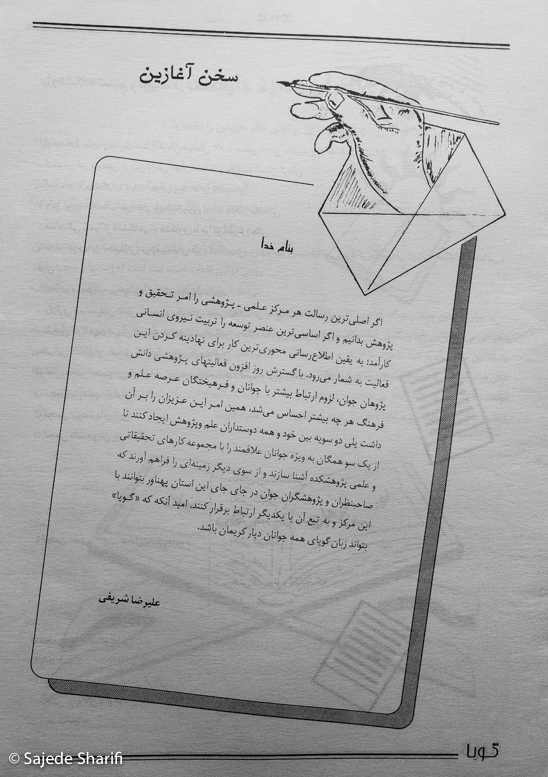 سخن آغازین
بنام خدا
اگر اصلی‌ترین رسالت هر مرکز علمی ـ پژوهشی را امر تحقیق و
پژوهش بدانیم و اگر اساسی‌ترین عنصر توسعه را تربیت نیروی انسانی
کارآمد؛ به یقین اطلاع‌رسانی محوری‌ترین کار برای نهادینه کردن این
فعالیت به شمار می‌رود. با گسترش روز افزون فعالیتهای پژوهشی دانش
پژوهان جوان، لزوم ارتباط بیشتر با جوانان و فرهیختگان عرصه علم و
فرهنگ هر چه بیشتر احساس می‌شد، همین امر این عزیزان را بر آن
داشت پلی دو سویه بین خود و همه دوستداران علم وپژوهش ایجاد کنند تا
از یک سو همگان به ویژه جوانان علاقمند را با مجموعه کارهای تحقیقاتی
و علمی پژوهشکده آشنا سازند و از سوی دیگر زمینه‌ای را فراهم آورند که
صاحبنظران و پژوهشگران جوان در جای جای این استان پهناور بتوانند با
این مرکز و به تبع آن با یکدیگر ارتباط برقرار کنند. امید آنکه که «گویا»
بتواند زبان گویای همه جوانان دیار کریمان باشد.
علیرضا شریفی
گویا
© Sajede Sharifi